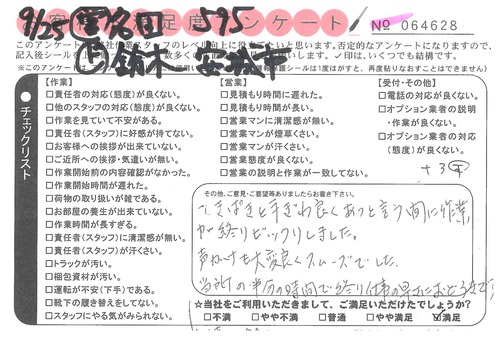 9/25 営 名四 595
足度アンケート
№ 064628
鈴木 安城市
このアンケート
否定的なアンケートになりますので、
記入後シール
いくつでも結構です。
※このアンケート
護シールは1度はがすと、再度貼りなおすことはできません)
チェックリスト
【作業】
□責任者の対応(態度)が良くない。
□他のスタッフの対応(態度)が良くない。
□作業を見ていて不安がある。
□責任者(スタッフ)に好感が持てない。
□お客様への挨拶が出来ていない。
□ご近所への挨拶・気遣いが無い。
□作業開始前の内容確認がなかった。
□作業開始時間が遅れた。
□荷物の取り扱いが雑である。
□お部屋の養生が出来ていない。
□作業時間が長すぎる。
□責任者(スタッフ)に清潔感が無い。
□責任者(スタッフ)が汗くさい。
□トラックが汚い。
□梱包資材が汚い。
□運転が不安(下手)である。
□靴下の履き替えをしてない。
□スタッフにやる気がみられない。
【営業】
□見積もり時間に遅れた。
□見積もり時間が長い。
□営業マンに清潔感が無い。
□営業マンが煙草くさい。
□営業マンが汗くさい。
□営業態度が良くない。
□営業の説明と作業が一致してない。
【受付・その他】
□電話の対応が良くない。
□オプション業者の説明
・作業が良くない。
□オプション業者の対応
(態度)が良くない。
+3
その他、ご意見・ご要望等ありましたらお書き下さい。
てきぱきと手ぎわ良くあっと言う間に作業
が終りビックリしました。
声かけも大変良くスムーズでした。
当初の半分の時間で終り仕事の早さにおどろきです
☆当社をご利用いただきまして、ご満足いただけたでしょうか?
□不満 □やや不満 □普通 □やや満足 ☑満足